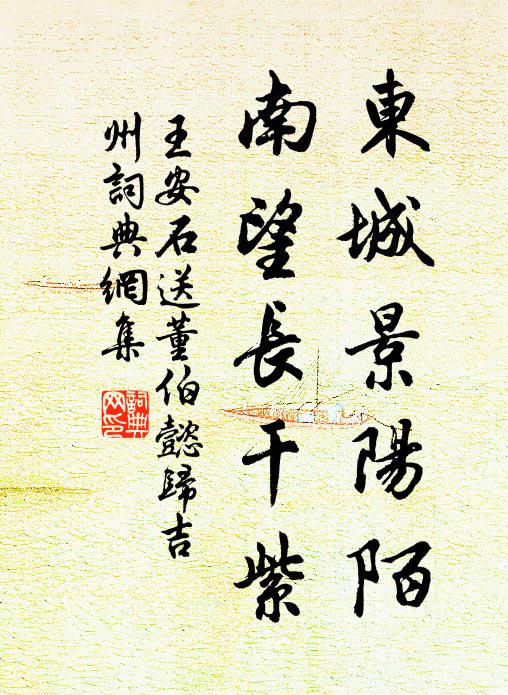 東城景陽陌
南望長干紫
王安石送董伯懿歸吉
州詞典網集
詞典
网印